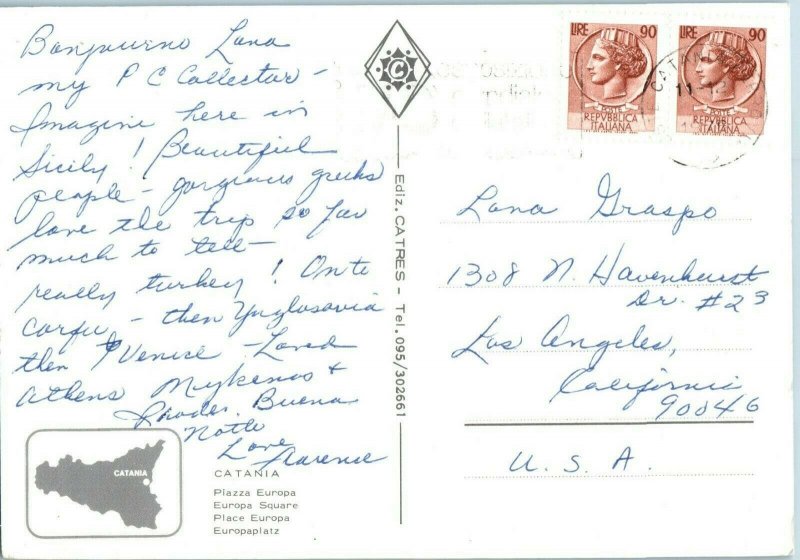 Bonjourno Lana
my P C Collector -
Imagine here in
Sicily! Beautiful
people - gorgeous greeks
love the trip so far
much to tell -
really turkey! Onto
Corfu - then Yuglosavia
then Venice - Loved
Athens Mykenos &
Rhodes. Buena
Notte
Love
Florence
CATANIA
CATANIA
Piazza Europa
Europa Square
Place Europa
Europaplatz
Ediz. CATRES - Tel. 095/302661
C
LIRE 90
POSTE
REPVBBLICA
ITALIANA
LIRE 90
POSTE
REPVBBLICA
ITALIANA
CATAN
Lana Graspo
1308 N. Havenhurst
Dr. #23
Los Angeles,
California
90046
U.S.A.